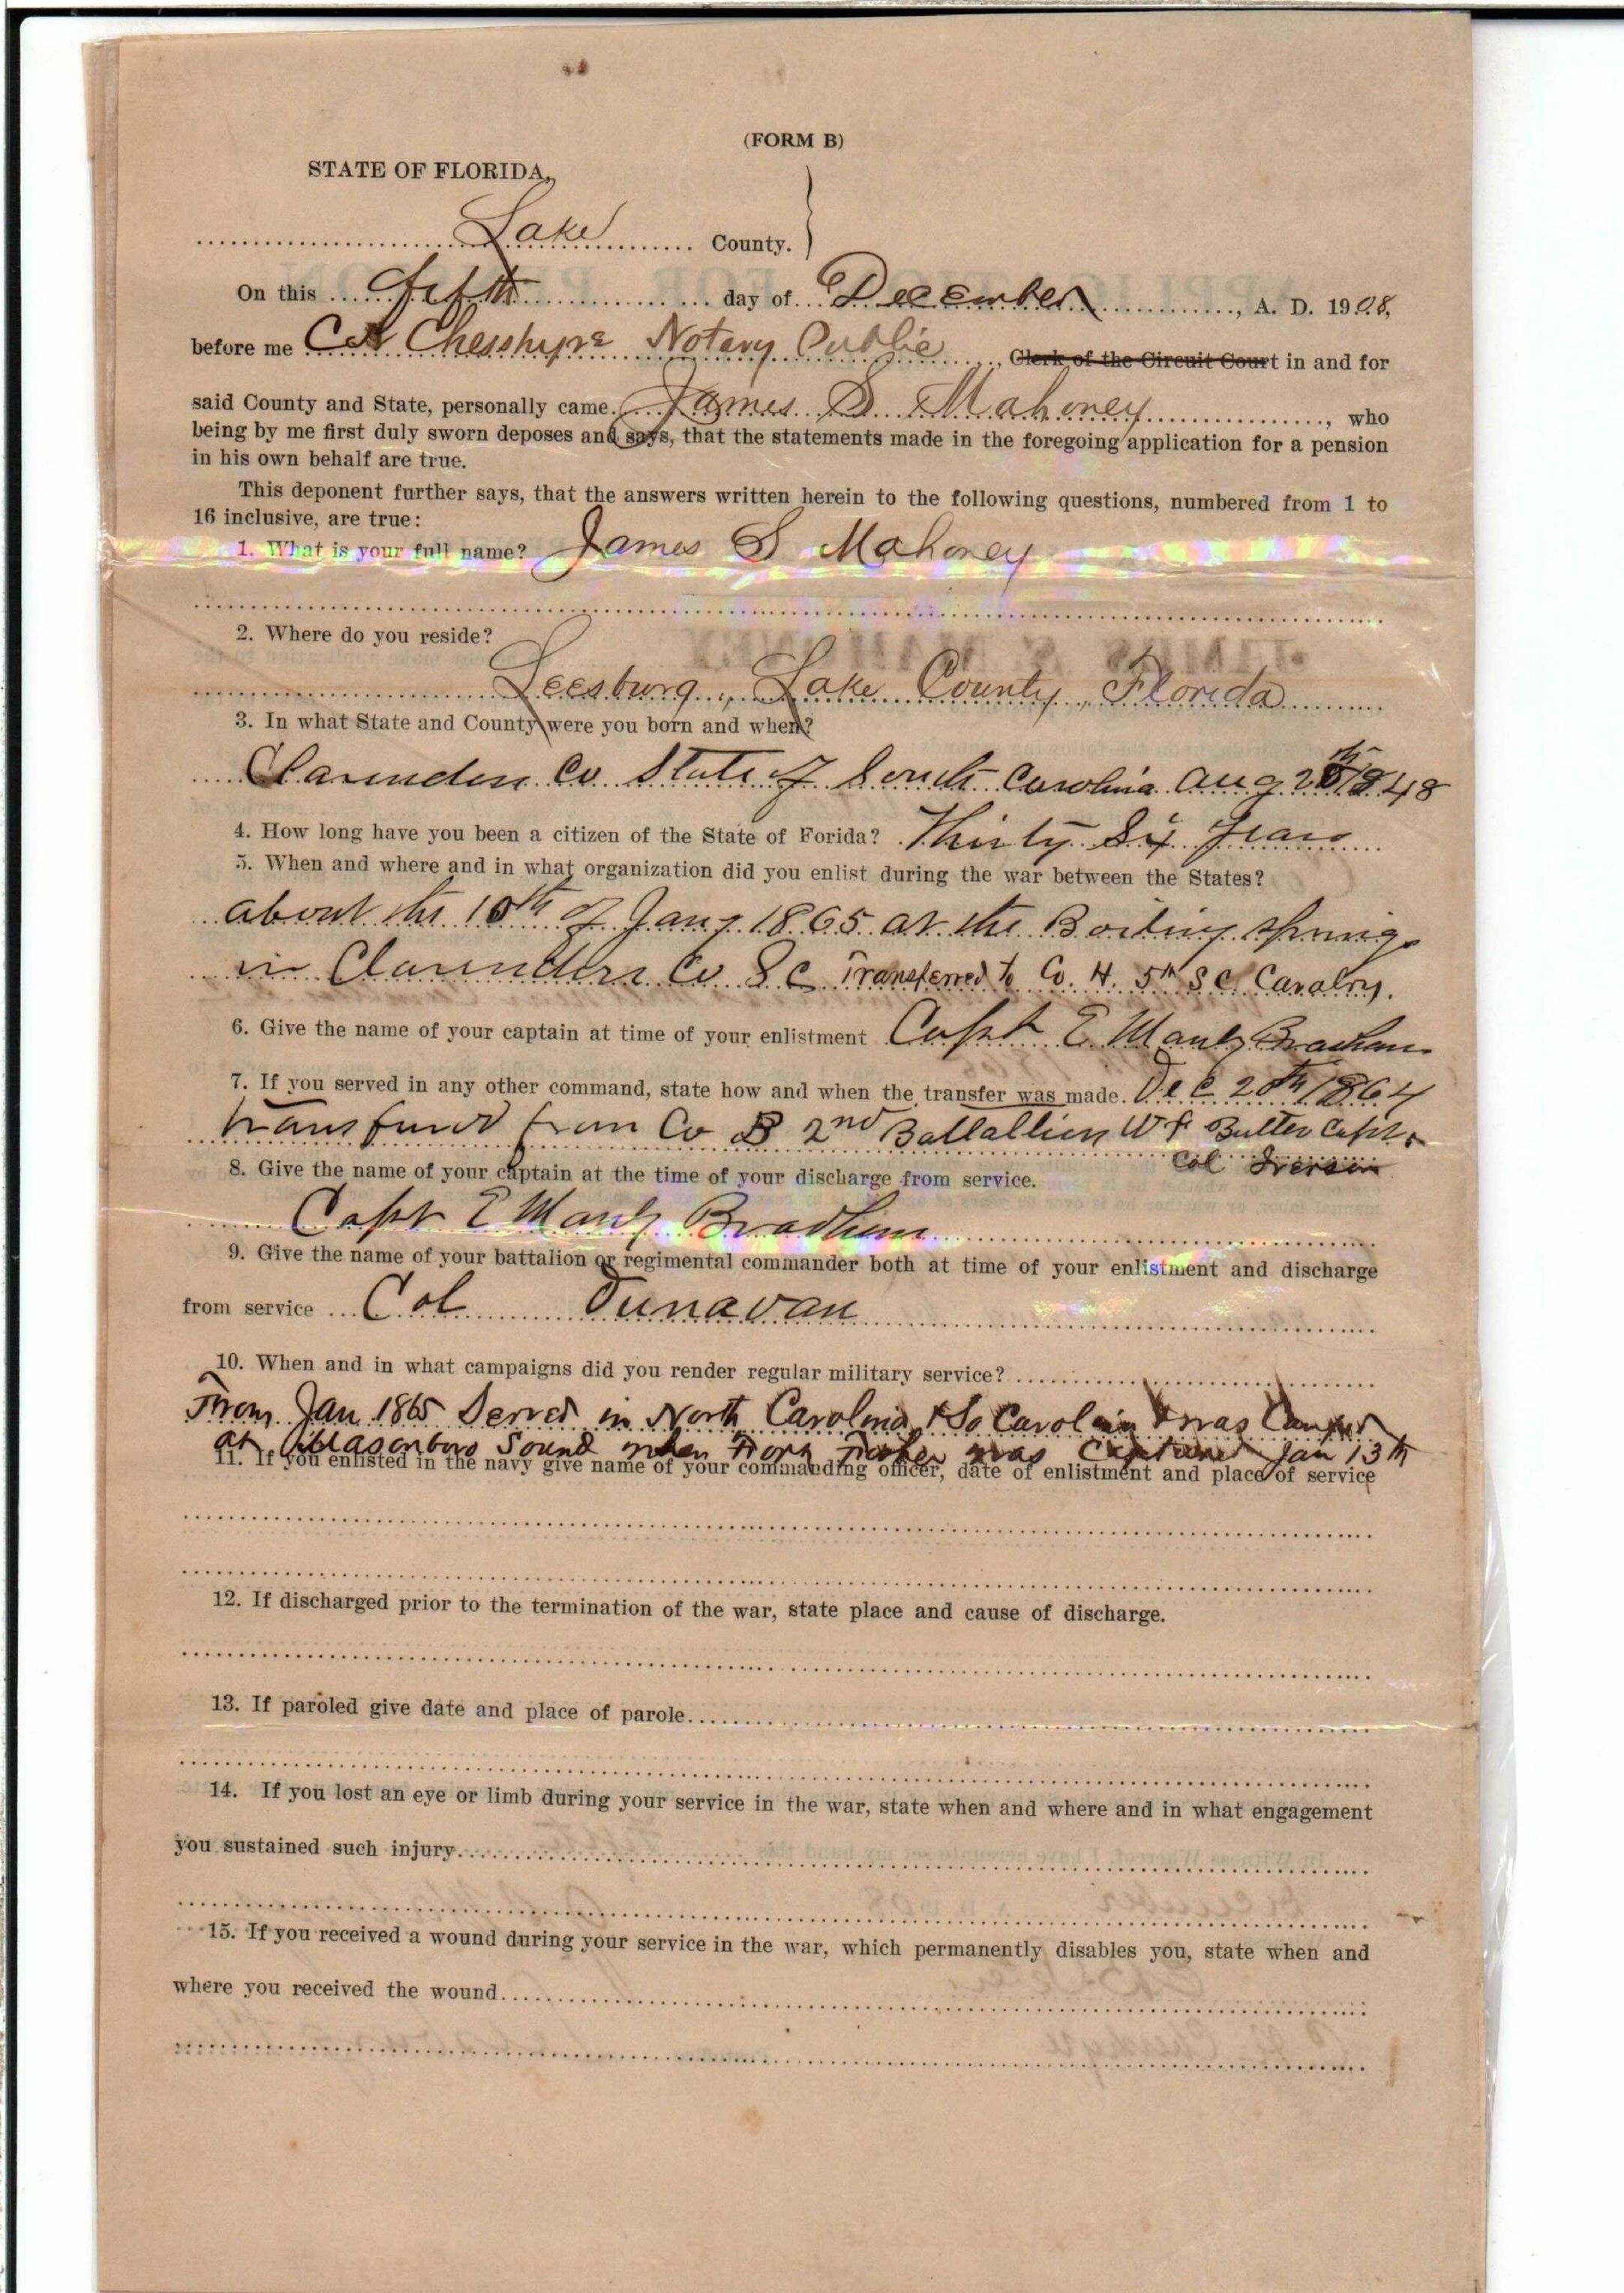 (FORM B)
STATE OF FLORIDA,
Lake County.
On this fifth day of December, A. D. 1908,
before me C A Chesshyre Notary Public, Clerk of the Circuit Court in and for
said County and State, personally came James S Mahoney, who
being by me first duly sworn deposes and says, that the statements made in the foregoing application for a pension
in his own behalf are true.
This deponent further says, that the answers written herein to the following questions, numbered from 1 to
16 inclusive, are true:
1. What is your full name? James S Mahoney
2. Where do you reside?
Leesburg, Lake County, Florida
3. In what State and County were you born and when?
Clarendon Co State of South Carolina Aug 1848
4. How long have you been a citizen of the State of Forida? Thirty Six years
5. When and where and in what organization did you enlist during the war between the States?
about the 10th of Jany 1865 at the Boiling Springs
in Clarendon Co S C Transferred to Co. H. 5th S C. Cavalry.
6. Give the name of your captain at time of your enlistment Capt E Manly Bradham
7. If you served in any other command, state how and when the transfer was made. Dec 20th 1864
transfured from Co B 2nd Battallion W P Butler Capt
Col Iverson
8. Give the name of your captain at the time of your discharge from service.
Capt E Manly Bradham
9. Give the name of your battalion or regimental commander both at time of your enlistment and discharge
from service Col Dunavan
10. When and in what campaigns did you render regular military service?
From Jan 1865 Served in North Carolina & So Carolina & was
at Masonboro Sound when Fort Fisher was Captured Jan 13th
11. If you enlisted in the navy give name of your commanding officer, date of enlistment and place of service
12. If discharged prior to the termination of the war, state place and cause of discharge.
13. If paroled give date and place of parole
14. If you lost an eye or limb during your service in the war, state when and where and in what engagement
you sustained such injury
15. If you received a wound during your service in the war, which permanently disables you, state when and
where you received the wound